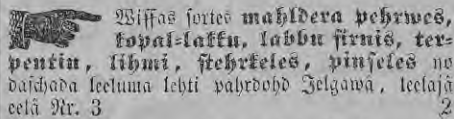 Wissas sortes mahldera pehrwes,
kopal-lakku, labbu firnis, ter-
pentin, lihmi, stehrkeles, pinseles no
daschada leeluma lehti pahrdohd Jelgawâ, leelajâ
eelâ Nr. 3 2